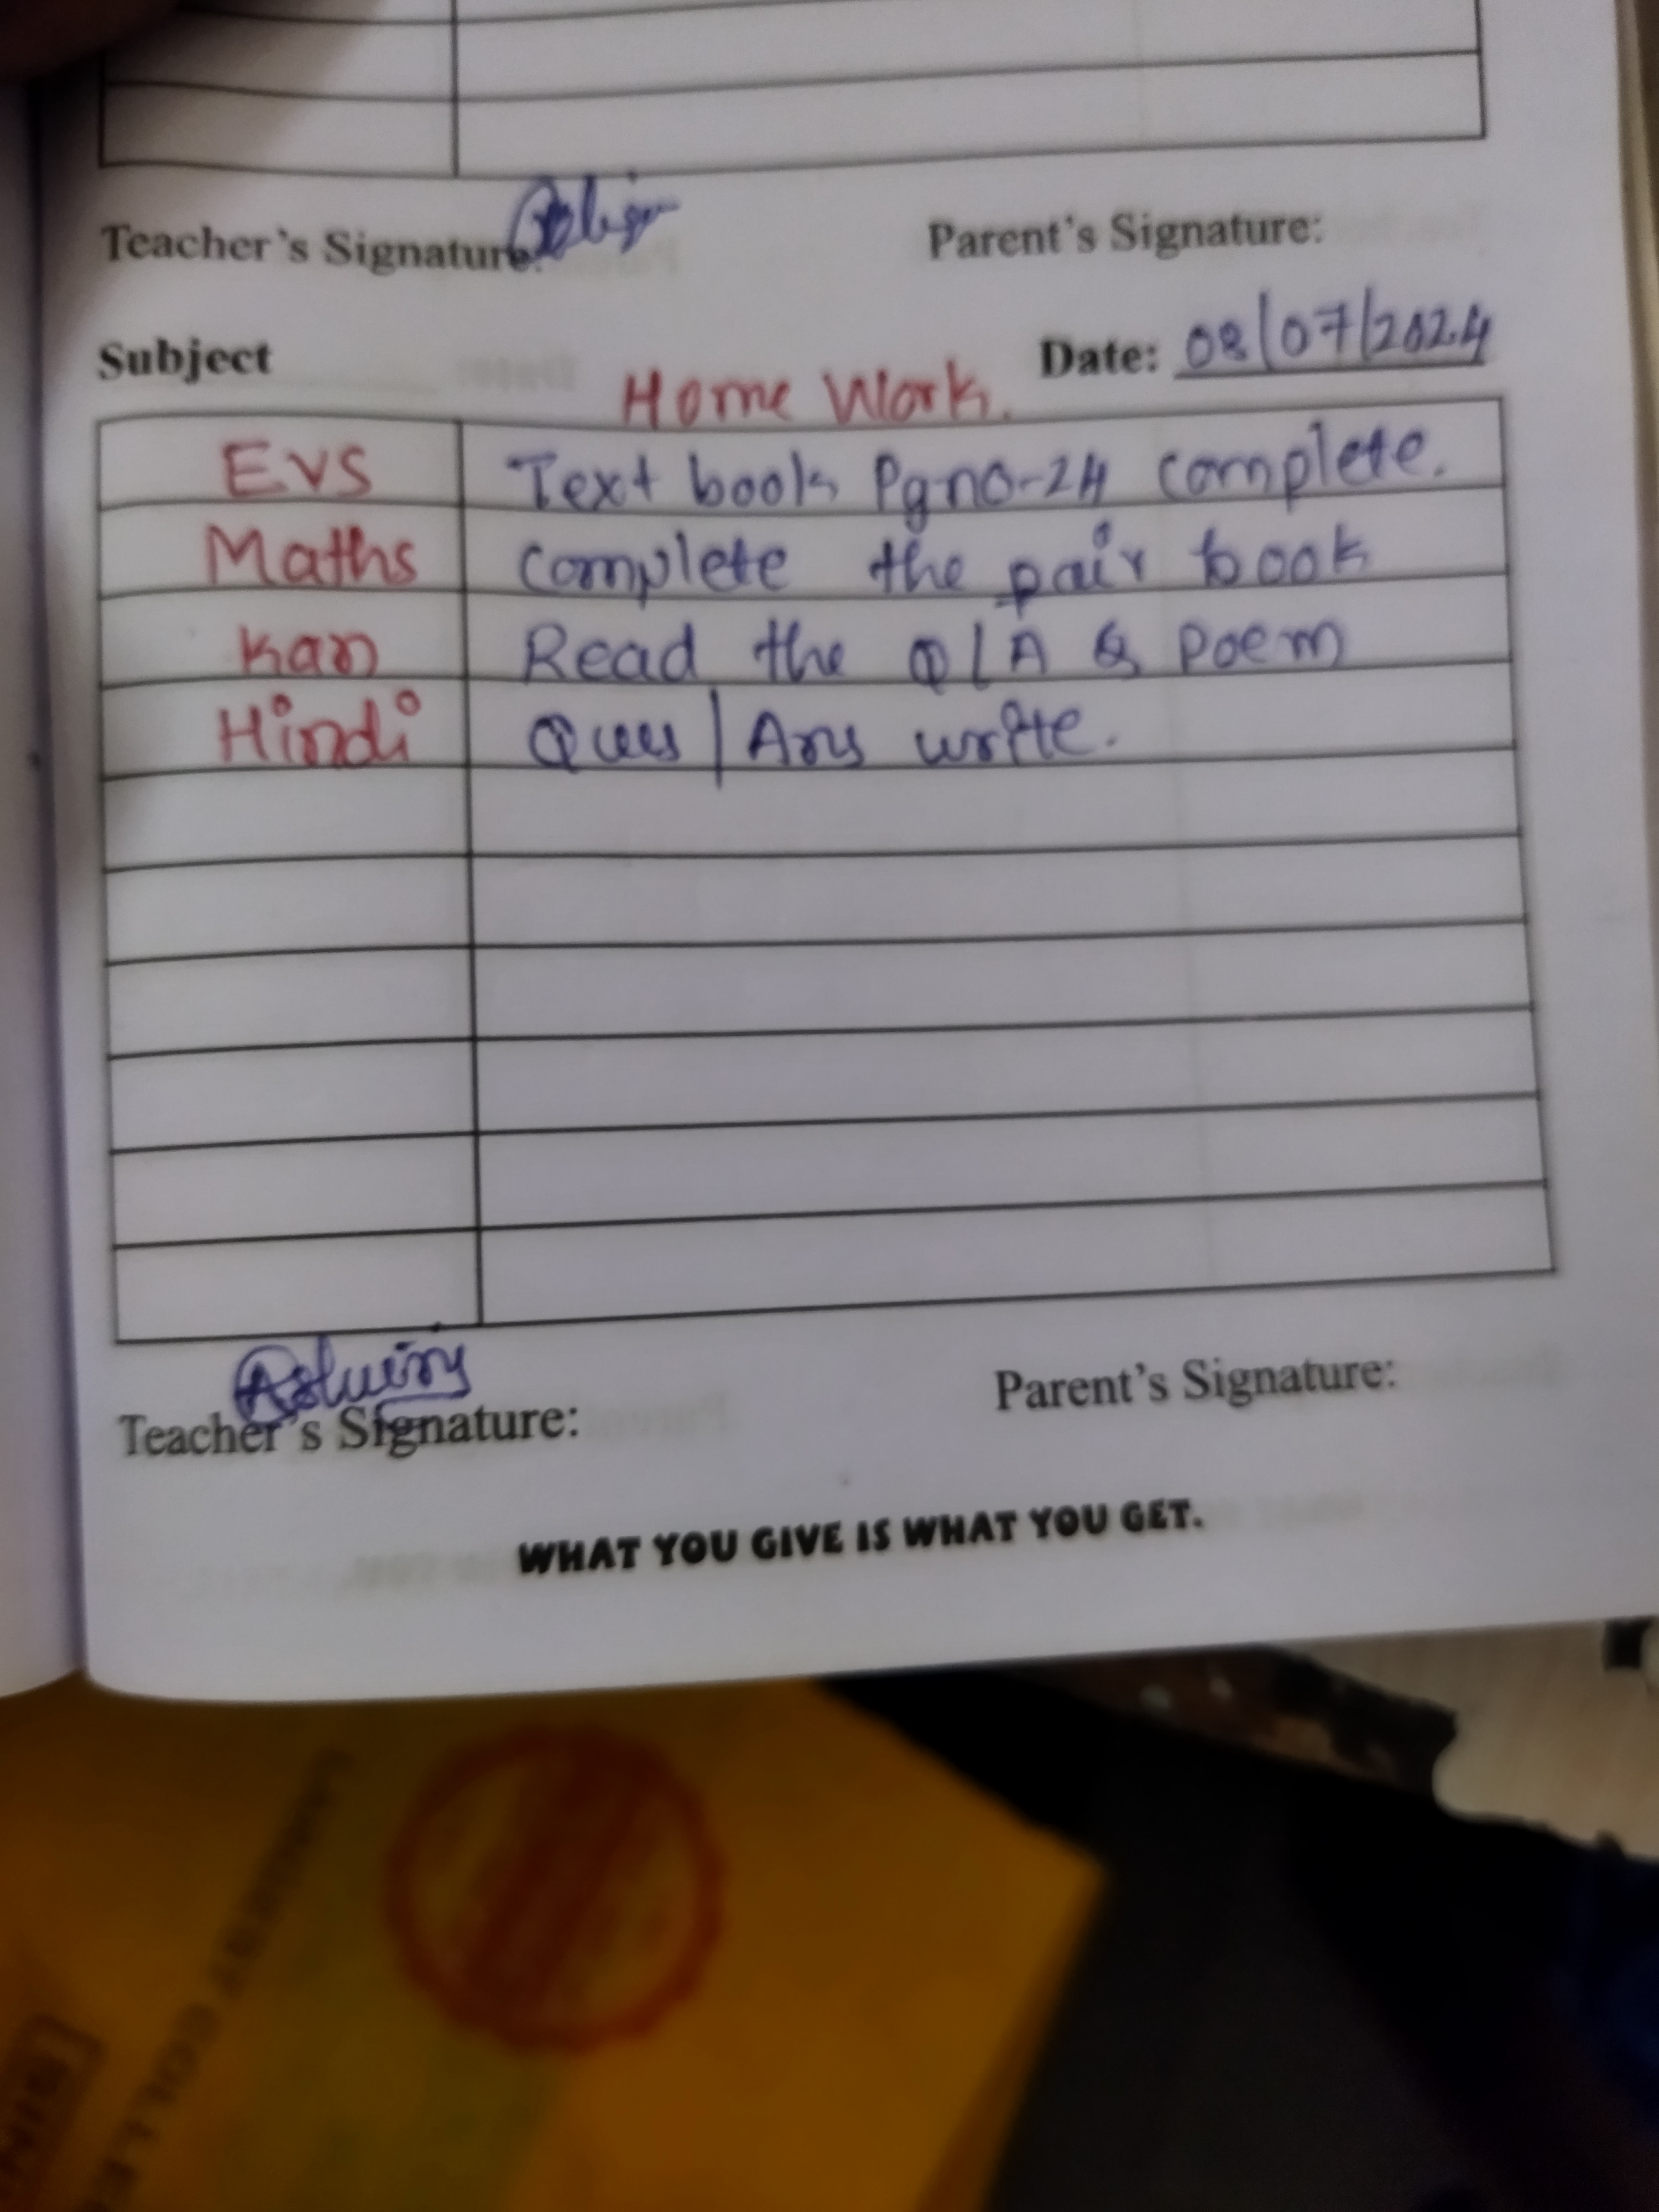 Teacher's Signature:
Parent's Signature:
Subject
Date: 08/07/2024
Home Work.
EVS Text book Pgno-24 complete.
Maths complete the pair book
Kan Read the Q/A & Poem
Hindi Ques/Ans write.
Teacher's Signature:
Parent's Signature:
WHAT YOU GIVE IS WHAT YOU GET.